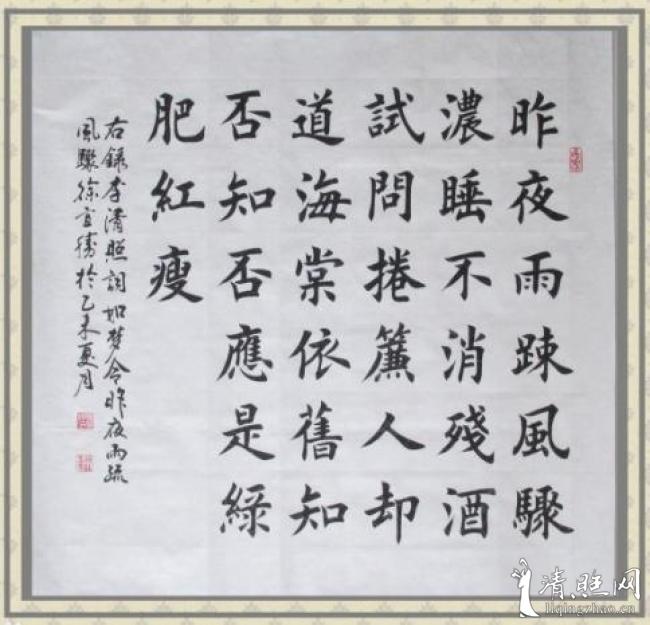 昨夜雨踈風驟
濃睡不消殘酒
試問捲簾人却
道海棠依舊知
否知否應是綠
肥紅瘦
右錄李清照詞如梦令昨夜雨疏
風驟徐於乙未夏月
清照网
liqingzhao.cn